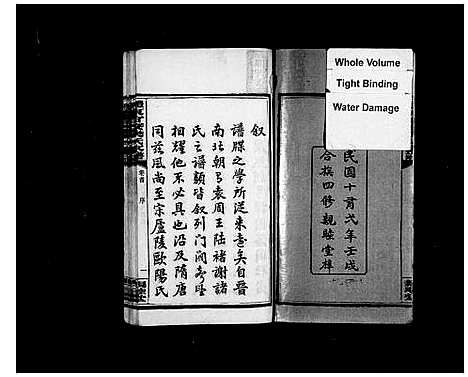 Whole Volume
Tight Binding
Water Damage
民國十有弍年壬戌
合族四修親睦堂梓
叙
譜牒之學所從來遠矣自晉
南北朝弓袁周王陸褚謝諸
氏之譜類皆叙列門閥
相耀他不必具也沿及隋唐
同茲風尚至宗廬陵歐陽氏
卷首
序
一